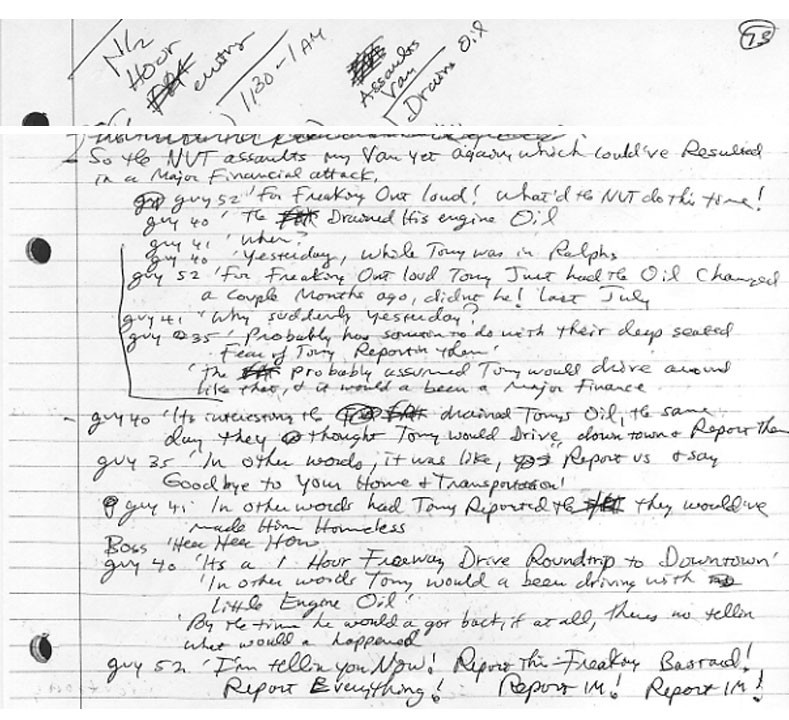 73
N/2
Hour
entry
1130 - 1 AM
Assaults
Van
Drains Oil
So the NUT assaults my Van yet again, which could've Resulted
in a Major Financial attack.
guy 52 'For Freaking Out loud! What'd the NUT do this time!
guy 40 'the Drained His engine Oil
guy 41 'When?
guy 40 'Yesterday, while Tony was in Ralphs
guy 52 'For Freaking Out loud Tony Just had the Oil Changed
a Couple Months ago, didnt he! last July
guy 41 'Why suddenly yesterday?'
guy 35 'Probably has somthin to do with their deep seated
Fear of Tony Reportin them'
'The probably assumed Tony would drive around
like that, & it would a been a Major Finance
guy 40 'Its interesting the drained Tonys Oil, the same
day they thought Tony would Drive downtown & Report them
guy 35 'In other words, it was like, Report us & say
Goodbye to Your Home & Transportation!
guy 41 'In other words had Tony Reported the they would've
made Him Homeless
Boss 'Hee Hee How
guy 40 'Its a 1 Hour Freeway Drive Roundtrip to Downtown'
'In other words Tony would a been driving with
Little Engine Oil'
'By the time he would a got back, if at all, theres no tellin
what would a happened
guy 52 'I'm tellin you Now! Report this Freaking Bastard!
Report Everything! Report IM! Report IM!